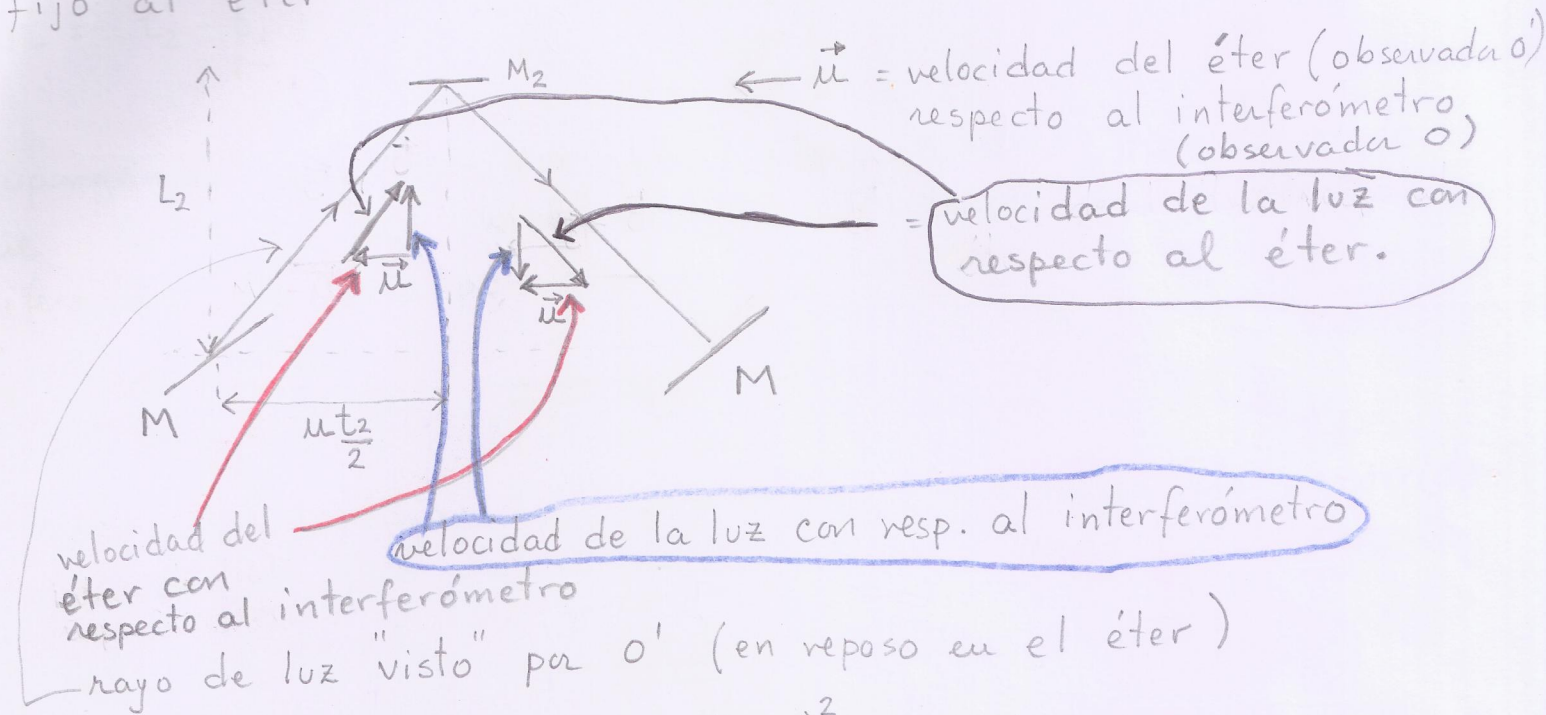 fijo al éter
M₂
← u⃗ = velocidad del éter (observada O')
respecto al interferómetro
(observada O)
L₂
= velocidad de la luz con
respecto al éter.
u⃗
u⃗
M
M
u t₂/2
velocidad del
éter con
respecto al interferómetro
velocidad de la luz con resp. al interferómetro
rayo de luz "visto" por O' (en reposo en el éter)
2